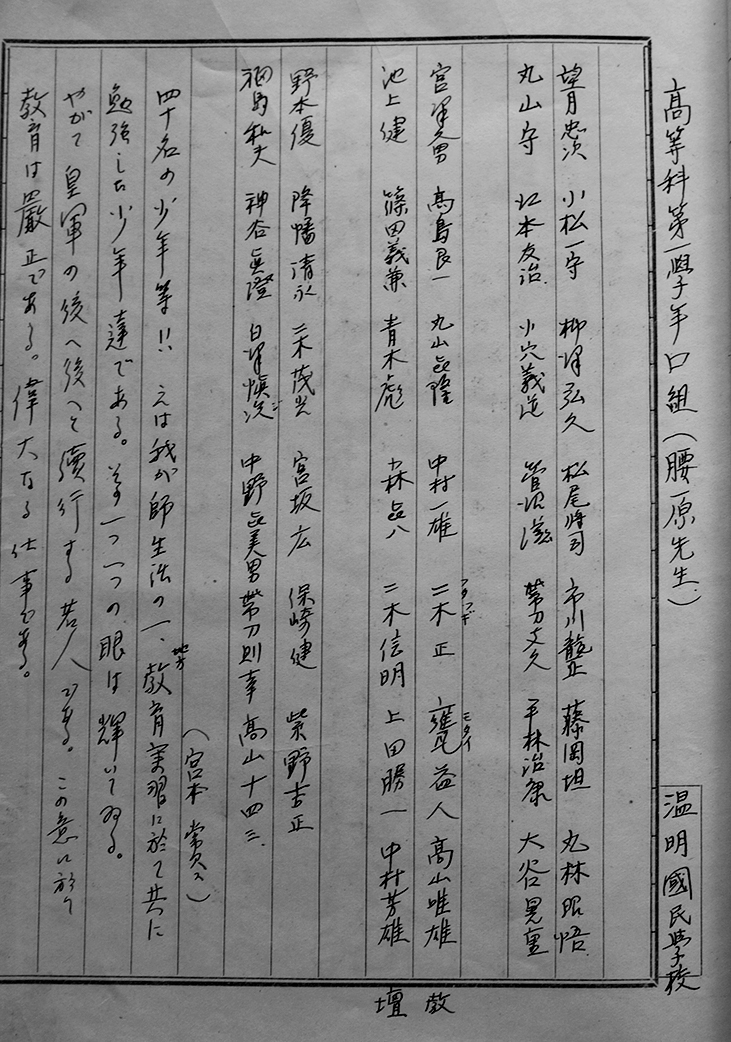 高等科第一學年口組（腰原先生）
温明國民學校
望月忠次 小松一守 柳澤弘久 松尾将司 市川龍正 藤岡坦 丸林昭悟
丸山守 江本友治 小穴義逆 菅沼滋 帯刀文久 平林治康 大谷晃重
宮澤久男 高島良一 丸山昌隆 中村一雄 二木正 甕益人 高山唯雄
フタツギ
モタイ
教
池上健 篠田義兼 青木彪 小林昌八 二木信明 上田勝一 中村芳雄
壇
野本優 降幡清永 二木茂光 宮坂広 保崎健 柴野吉正
福島和夫 神谷眞澄 白澤慎次 中野昌美男 帯刀則幸 高山十四三
（宮本 常久）
四十名の少年等!! 之は我が師生活の一、地方教育実習に於て共に
勉強した少年達である。その一つ一つの眼は輝いてゐる。
やがて皇軍の後へ後へと續行する若人である。この意に於て
教育は嚴正である。偉大なる仕事である。